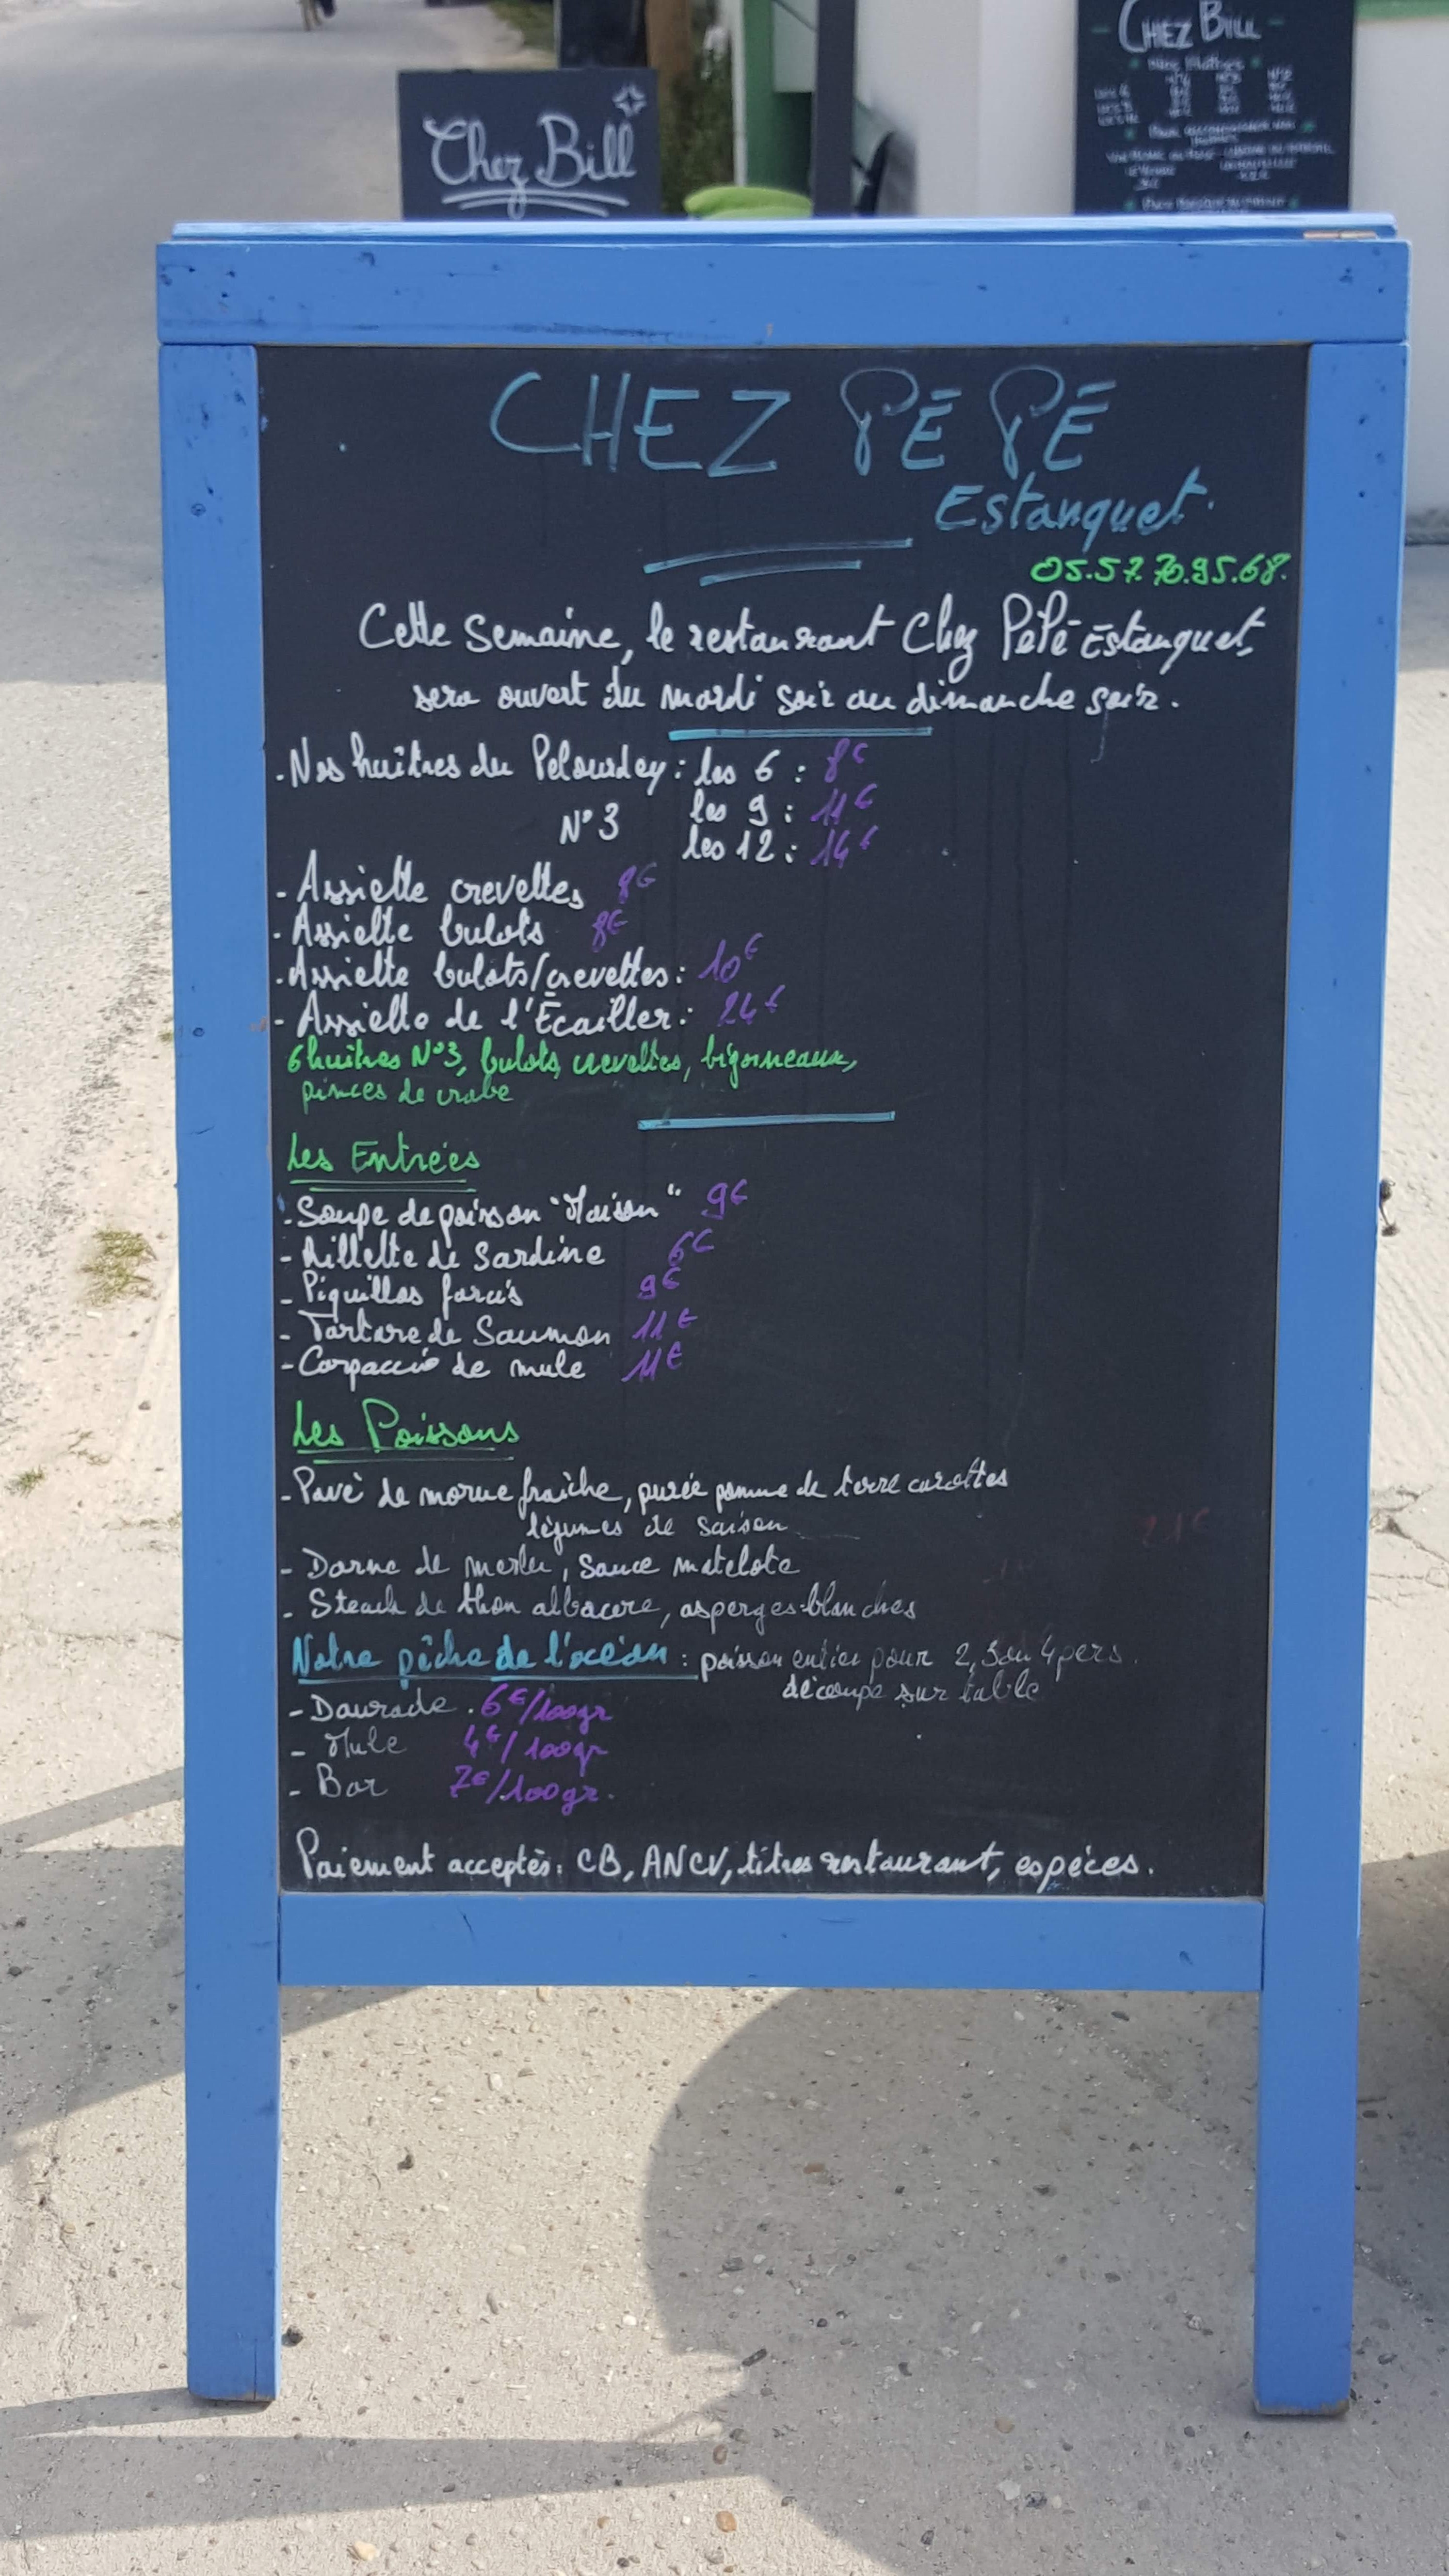 Chez Bill
CHEZ BILL
CHEZ PÉPÉ
Estanquet.
05.57.70.95.68.
Cette Semaine, le restaurant Chez PéPé Estanquet,
sera ouvert du mardi soir au dimanche soir.
- Nos huîtres du Pelourdey : les 6 : 8€
N°3 les 9 : 11€
les 12 : 14€
- Assiette crevettes 8€
- Assiette bulots 8€
- Assiette bulots/crevettes : 10€
- Assiette de l'Écailler : 24€
6 huîtres N°3, bulots, crevettes, bigorneaux,
pinces de crabe
Les Entrées
- Soupe de poisson "Maison" 9€
- Rillette de Sardine 6€
- Piquillos farcis 9€
- Tartare de Saumon 11€
- Carpaccio de mule 11€
Les Poissons
- Pavé de morue fraîche, purée pomme de terre carottes
légumes de saison 21€
- Darne de merlu, sauce matelote
- Steack de thon albacore, asperges blanches
Notre pêche de l'océan : poisson entier pour 2, 3 ou 4 pers.
découpe sur table
- Daurade . 6€/100gr
- Mule 4€/100gr
- Bar 7€/100gr.
Paiement acceptés : CB, ANCV, titres restaurant, espéces.